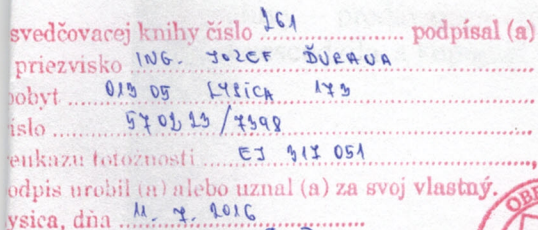 svedčovacej knihy číslo 261 podpísal (a)
priezvisko ING. JOZEF ĎURANA
pobyt 013 05 LYSICA 173
íslo 570223/7398
eukazu totožnosti EJ 317 051
odpis urobil (a) alebo uznal (a) za svoj vlastný.
ysica, dňa 11. 7. 2016
OBE